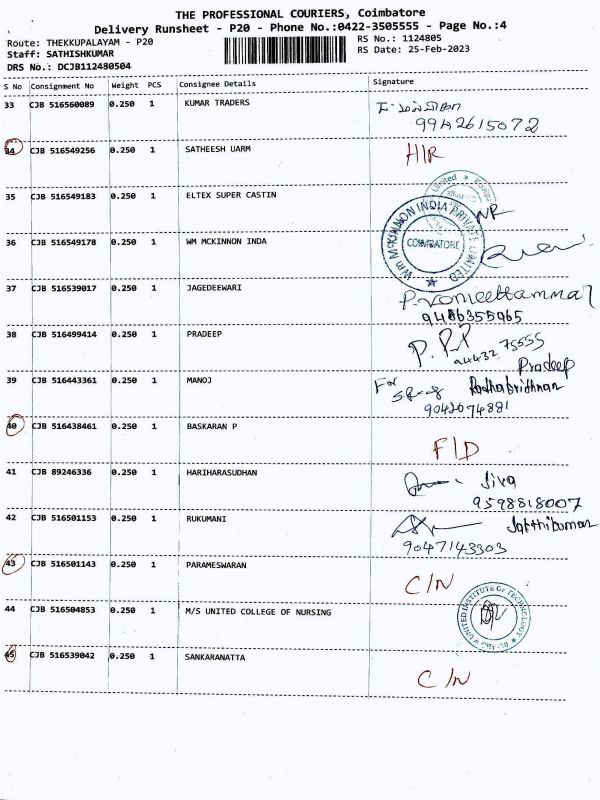 THE PROFESSIONAL COURIERS, Coimbatore
Delivery Runsheet - P20 - Phone No.:0422-3505555 - Page No.:4
Route: THEKKUPALAYAM - P20
RS No.: 1124805
Staff: SATHISHKUMAR
RS Date: 25-Feb-2023
DRS No.: DCJB112480504
S No Consignment No Weight PCS Consignee Details Signature
33 CJB 516560089 0.250 1 KUMAR TRADERS
9942615072
34 CJB 516549256 0.250 1 SATHEESH UARM H/R
35 CJB 516549183 0.250 1 ELTEX SUPER CASTIN
36 CJB 516549178 0.250 1 WM MCKINNON INDA
WM MCKINNON INDIA PRIVATE LIMITED
COIMBATORE
37 CJB 516539017 0.250 1 JAGEDEEWARI
9486355965
38 CJB 516499414 0.250 1 PRADEEP P. P.P
94432 75555
Pradeep
39 CJB 516443361 0.250 1 MANOJ For Radhakrithnan
9042674881
40 CJB 516438461 0.250 1 BASKARAN P F/D
41 CJB 89246336 0.250 1 HARIHARASUDHAN Jiva
9598818007
42 CJB 516501153 0.250 1 RUKUMANI Jakthikumar
9047143303
43 CJB 516501143 0.250 1 PARAMESWARAN C/N
44 CJB 516504853 0.250 1 M/S UNITED COLLEGE OF NURSING
UNITED INSTITUTE OF TECHNOLOGY
45 CJB 516539042 0.250 1 SANKARANATTA C/N